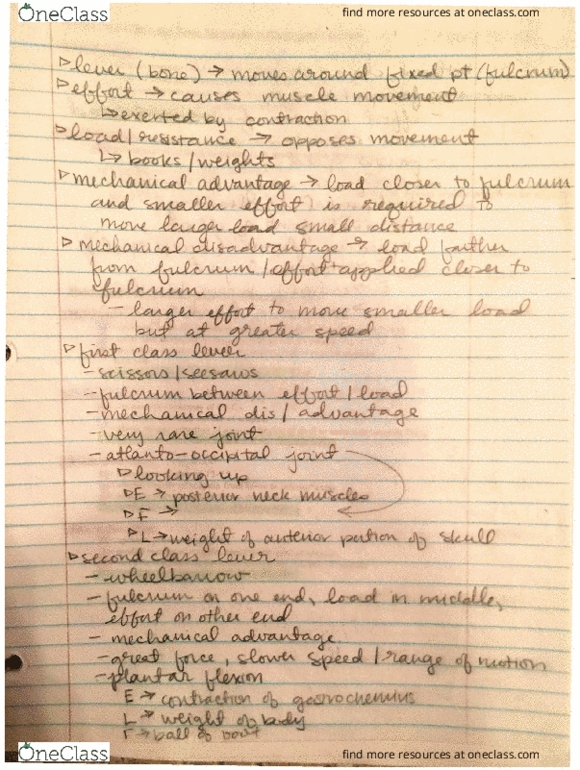 OneClass
find more resources at oneclass.com
▷ lever (bone) → moves around fixed pt (fulcrum)
▷ effort → causes muscle movement
↳ exerted by contraction
▷ load/resistance → opposes movement
↳ books/weights
▷ mechanical advantage → load closer to fulcrum
and smaller effort is required to
move larger load small distance
▷ mechanical disadvantage → load farther
from fulcrum/effort applied closer to
fulcrum
- larger effort to move smaller load
but at greater speed
▷ first class lever
- scissors/seesaws
- fulcrum between effort/load
- mechanical dis/advantage
- very rare joint
- atlanto-occipital joint
▷ looking up
▷ E → posterior neck muscles
▷ F →
▷ L → weight of anterior portion of skull
▷ second class lever
- wheelbarrow
- fulcrum on one end, load in middle,
effort on other end
- mechanical advantage
- great force, slower speed/range of motion
- plantar flexion
E → contraction of
L → weight of body
F → ball of
OneClass
find more resources at oneclass.com